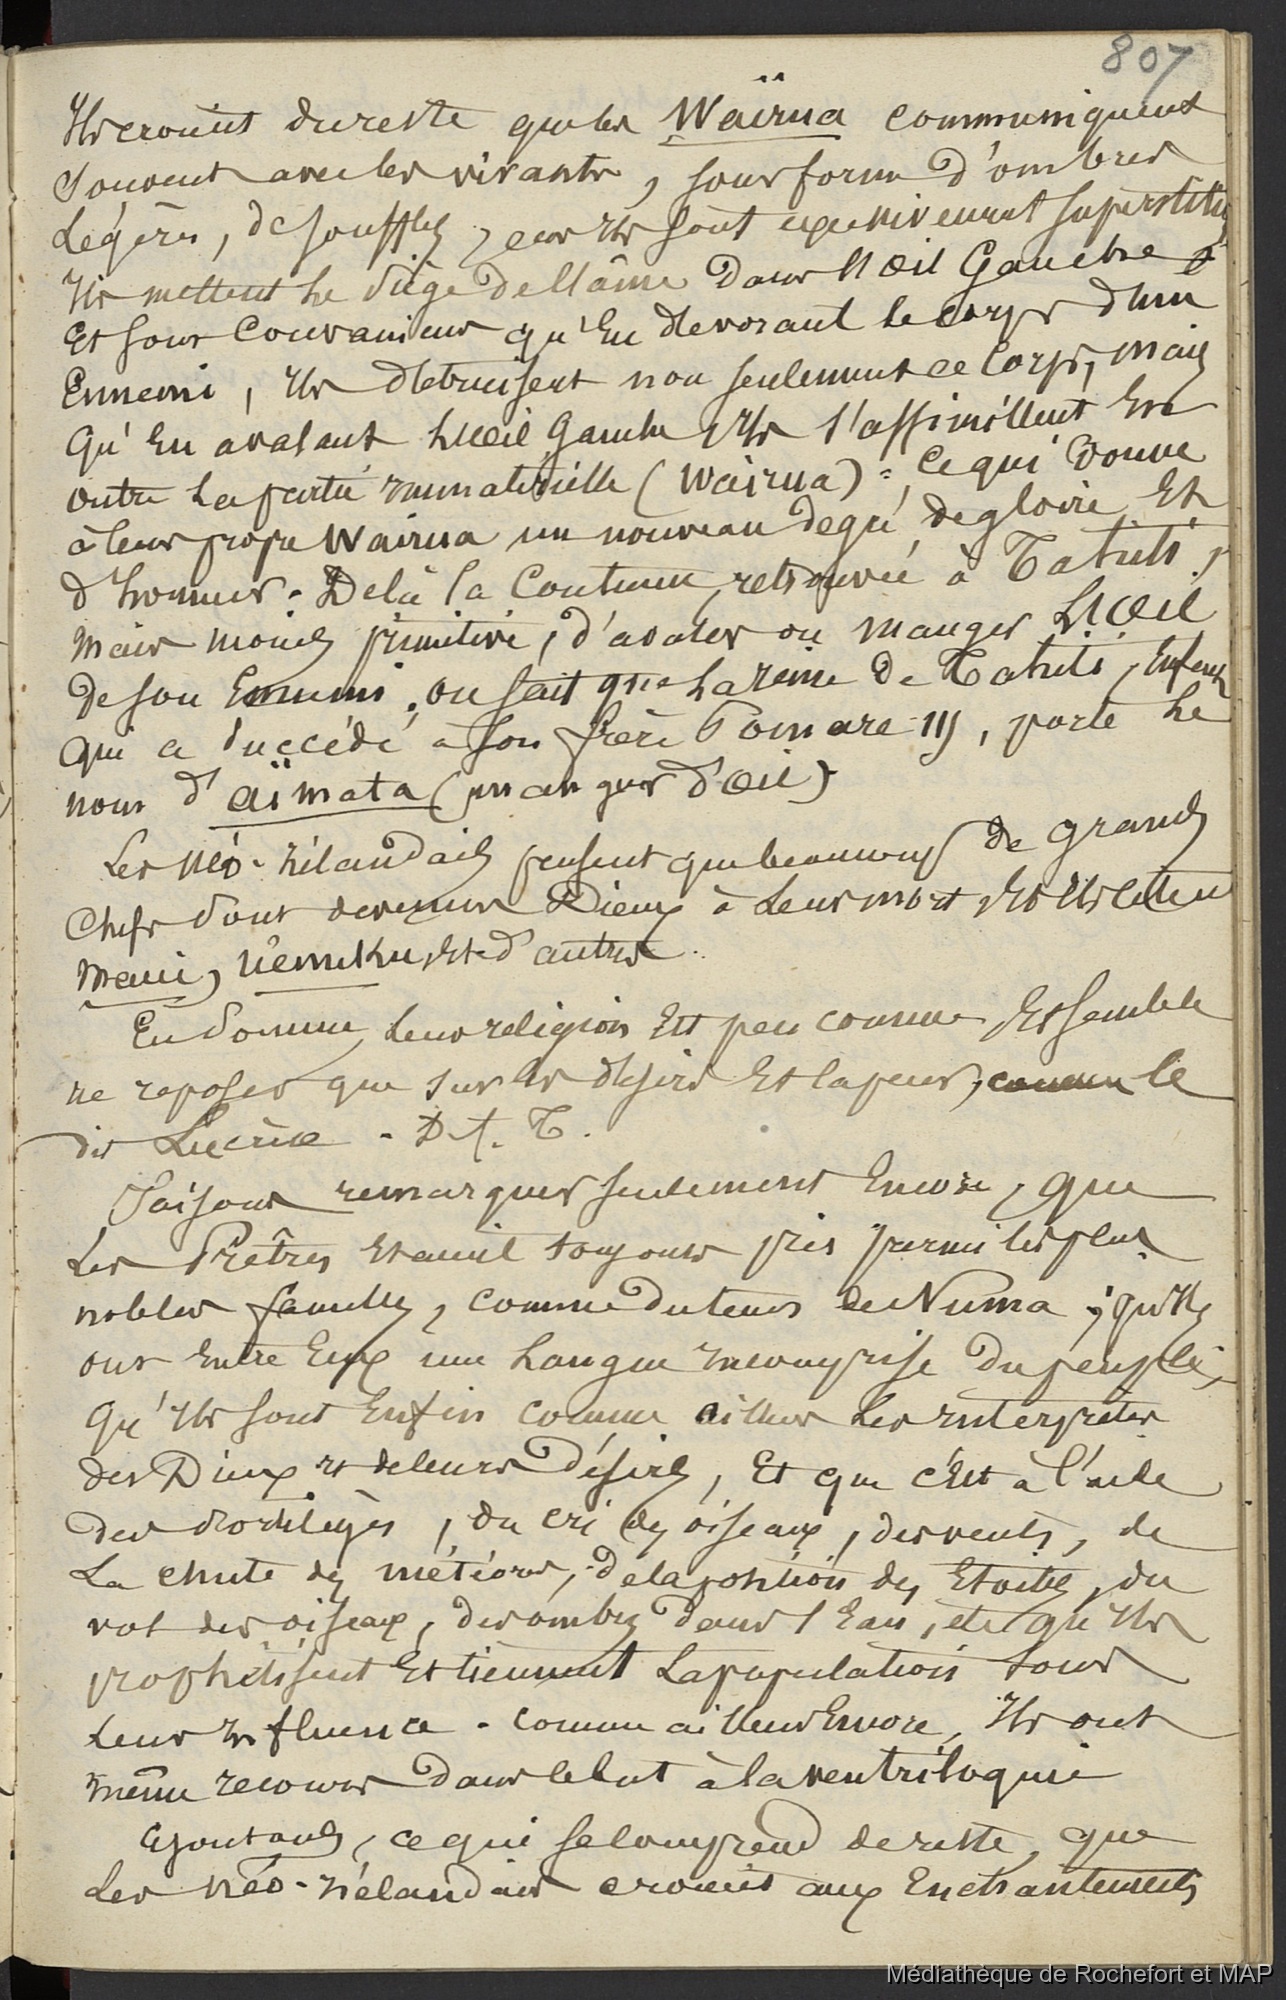 807
Ils croient du reste que les Waïrua communiquent
souvent avec les vivants, sous forme d'ombres
légères, de souffles, car ils sont excessivement superstitieux
Ils mettent le siège de l'âme dans l'œil Gauche
et sont convaincus qu'en dévorant le corps d'un
Ennemi, ils détruisent non seulement ce corps, mais
qu'en avalant l'œil gauche ils s'assimillent en
outre la partie immatérielle (Waïrua) = ce qui donne
à leur propre Waïrua un nouveau degré de gloire et
d'honneur. De là la coutume, retrouvée à Tahiti,
mais moins primitive, d'avaler ou manger l'œil
de son Ennemi. On sait que la reine de Tahiti,
qui a succédé à son frère Pomare III, porte le
nom d'aïmata (manger d'œil)
Les néo-zélandais pensent que beaucoup de grands
chefs sont devenus Dieux à leur mort et ils citent
Maui, et d'autres.
En somme, leur religion est peu connue et semble
ne reposer que sur les désirs et la peur, comme le
dit Lucrèce. D. f. T.
Faisons remarquer seulement encore, que
les Prêtres étaient toujours pris parmi les plus
nobles familles, comme du tems de Numa ; qu'ils
ont entre eux une langue incomprise du peuple,
qu'ils sont enfin comme ailleurs les interprètes
des Dieux et de leurs désirs, et que c'est à l'aide
des sortilèges, du cri des oiseaux, des vents, de
la chute des météores, de la position des étoiles, du
vol des oiseaux, des ombres dans l'Eau, etc qu'ils
prophétisent et tiennent la population sous
leur influence. comme ailleurs encore, ils ont
même recours dans le but à la ventriloquie
Ajoutons, ce qui se comprend de reste, que
les néo-zélandais croient aux Enchantements
Médiathèque de Rochefort et MAP